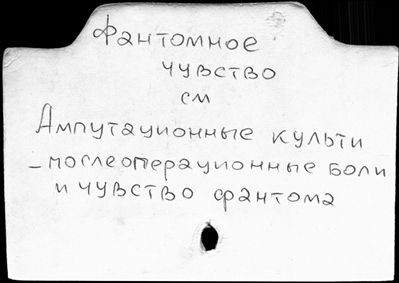 Фантомное
чувство
см
Ампутационные культи
– послеоперационные боли
и чувство фантома